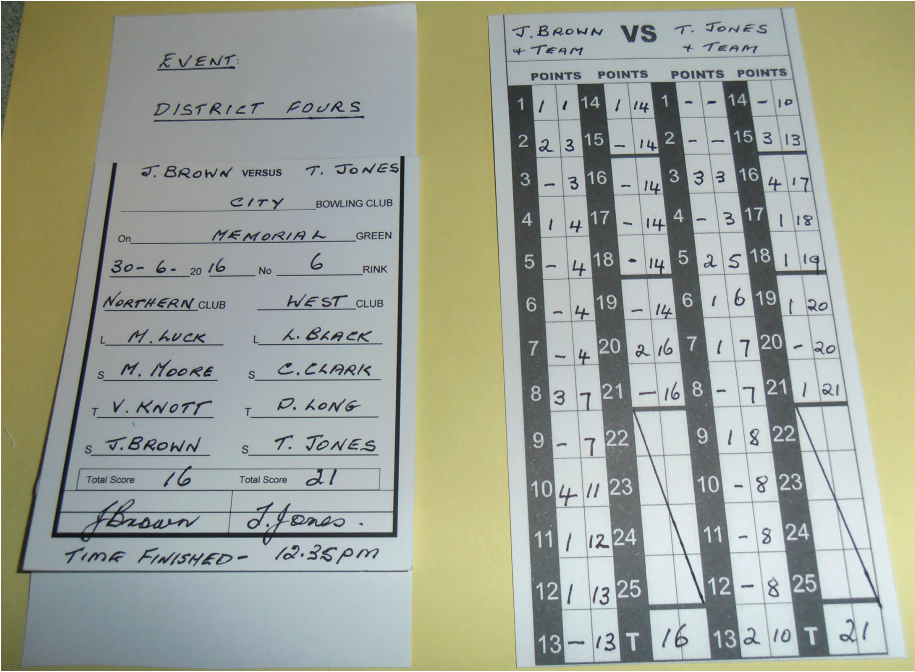 EVENT:
DISTRICT FOURS
J. BROWN VERSUS T. JONES
CITY BOWLING CLUB
On MEMORIAL GREEN
30-6- 2016 No 6 RINK
NORTHERN CLUB WEST CLUB
L M. LUCK L L. BLACK
S M. MOORE S C. CLARK
T V. KNOTT T D. LONG
S J. BROWN S T. JONES
Total Score 16 Total Score 21
J Brown T. Jones.
TIME FINISHED- 12.35pm
J. BROWN VS T. JONES
& TEAM & TEAM
POINTS POINTS POINTS POINTS
1 1 1 14 1 14 1 - - 14 - 10
2 2 3 15 - 14 2 - - 15 3 13
3 - 3 16 - 14 3 3 3 16 4 17
4 1 4 17 - 14 4 - 3 17 1 18
5 - 4 18 - 14 5 2 5 18 1 19
6 - 4 19 - 14 6 1 6 19 1 20
7 - 4 20 2 16 7 1 7 20 - 20
8 3 7 21 - 16 8 - 7 21 1 21
9 - 7 22 9 1 8 22
10 4 11 23 10 - 8 23
11 1 12 24 11 - 8 24
12 1 13 25 12 - 8 25
13 - 13 T 16 13 2 10 T 21